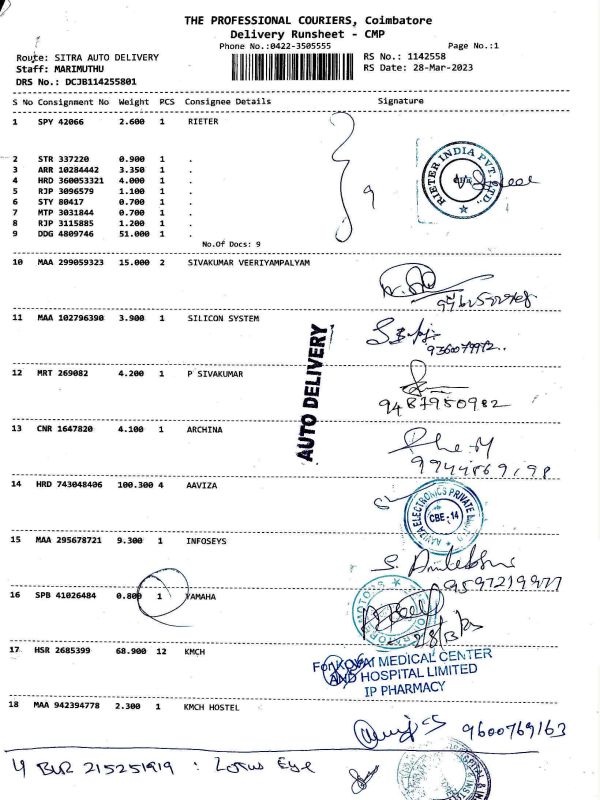 THE PROFESSIONAL COURIERS, Coimbatore
Delivery Runsheet - CMP
Phone No.:0422-3505555
Page No.:1
Route: SITRA AUTO DELIVERY
RS No.: 1142558
Staff: MARIMUTHU
RS Date: 28-Mar-2023
DRS No.: DCJB114255801
S No Consignment No Weight PCS Consignee Details Signature
1 SPY 42066 2.600 1 RIETER
RIETER INDIA PVT. LTD.,
2 STR 337220 0.900 1 .
3 ARR 10284442 3.350 1 .
4 HRD 360053321 4.000 1 .
5 RJP 3096579 1.100 1 .
9
6 STY 80417 0.700 1 .
7 MTP 3031844 0.700 1 .
8 RJP 3115885 1.200 1 .
9 DDG 4809746 51.000 1 .
No.Of Docs: 9
10 MAA 299059323 15.000 2 SIVAKUMAR VEERIYAMPALYAM
11 MAA 102796390 3.900 1 SILICON SYSTEM
AUTO DELIVERY
12 MRT 269082 4.200 1 P SIVAKUMAR
9487950982
13 CNR 1647820 4.100 1 ARCHINA
14 HRD 743048406 100.300 4 AAVIZA
AAVIZA ELECTRONICS PRIVATE
CBE-14
15 MAA 295678721 9.300 1 INFOSEYS
9597219977
16 SPB 41026484 0.800 1 YAMAHA
17 HSR 2685399 68.900 12 KMCH
For KOVAI MEDICAL CENTER
AND HOSPITAL LIMITED
IP PHARMACY
18 MAA 942394778 2.300 1 KMCH HOSTEL
9600769163
BLR 215251919 : Lotus Eye